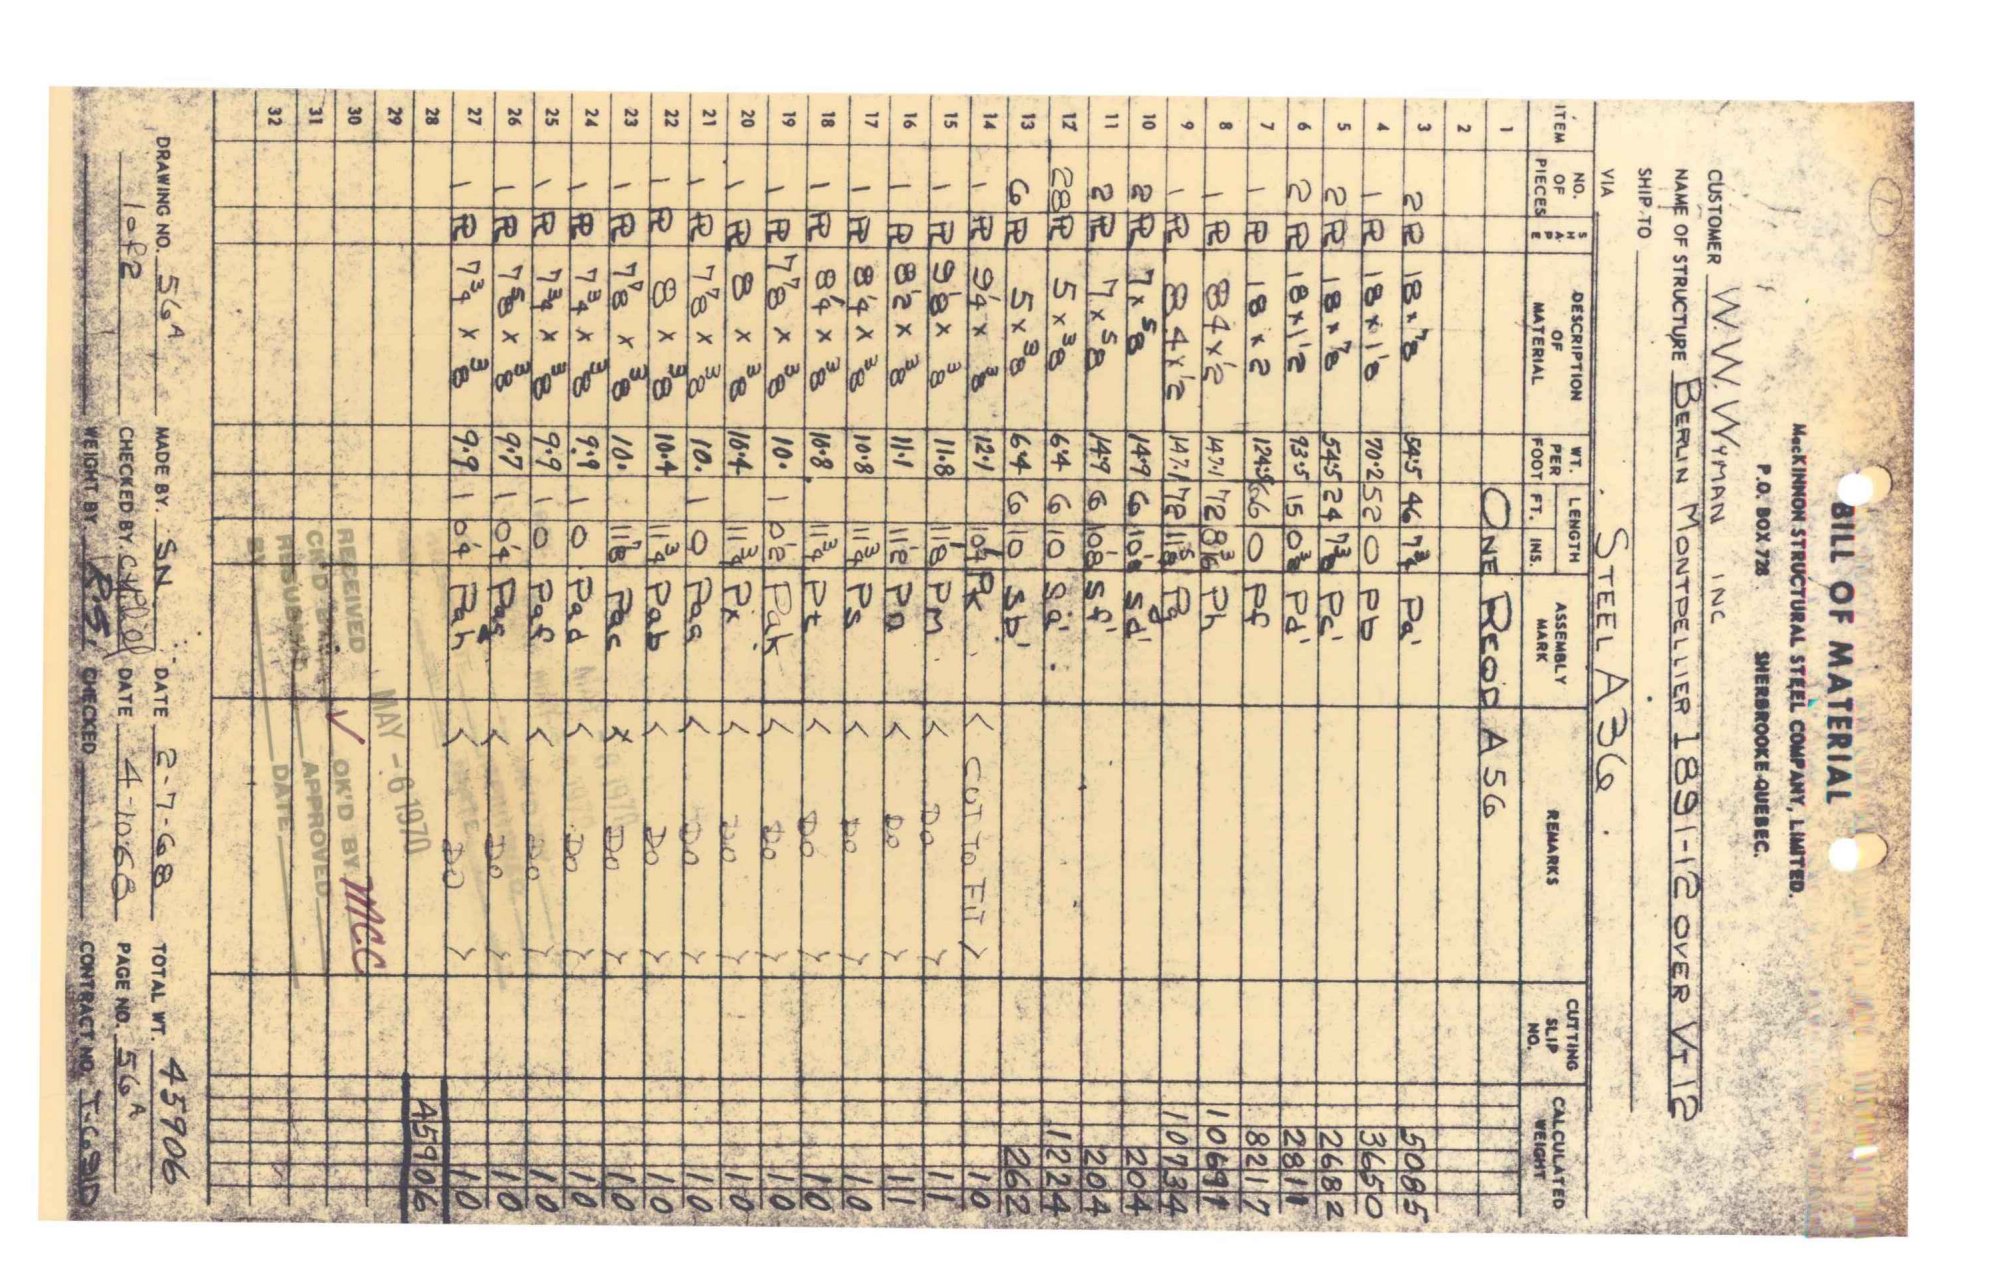 BILL OF MATERIAL
MacKINNON STRUCTURAL STEEL COMPANY, LIMITED.
P.O. BOX 728 SHERBROOKE-QUEBEC.
CUSTOMER W.W. WYMAN INC
NAME OF STRUCTURE BERLIN MONTPELLIER 1891-12 OVER VT-12
SHIP-TO
VIA STEEL A36.
ITEM NO. OF PIECES SHAPE DESCRIPTION OF MATERIAL WT. PER FOOT LENGTH FT. INS. ASSEMBLY MARK REMARKS CUTTING SLIP NO. CALCULATED WEIGHT
1 ONE REQD A56
2
3 2 PL 18 x 7/8 54.5 46 7 3/4 Pa' 5085
4 1 PL 18 x 1 1/8 70.2 52 0 Pb 3650
5 2 PL 18 x 7/8 54.5 24 7 3/8 Pc' 2682
6 2 PL 18 x 1 1/2 93.5 15 0 3/8 Pd' 2811
7 1 PL 18 x 2 124.5 66 0 Pf 8217
8 1 PL 84 x 1/2 147.1 72 8 3/16 Ph 10691
9 1 PL 84 x 1/2 147.1 72 11 5/8 Pg 10734
10 2 PL 7 x 5/8 14.9 6 10 1/8 Sd' 204
11 2 PL 7 x 5/8 14.9 6 10 1/8 Sf' 204
12 28 PL 5 x 3/8 6.4 6 10 Sa' 1224
13 6 PL 5 x 3/8 6.4 6 10 Sb' 262
14 1 PL 9 1/4 x 3/8 12.1 10 1/4 Pk < CUT TO FIT > 10
15 1 PL 9 1/8 x 3/8 11.8 11 1/8 Pm < DO > 11
16 1 PL 8 1/2 x 3/8 11.1 11 1/2 < DO > 11
17 1 PL 8 1/4 x 3/8 10.8 11 3/4 Ps < DO > 10
18 1 PL 8 1/4 x 3/8 10.8 11 3/4 Pt < DO > 10
19 1 PL 7 7/8 x 3/8 10. 1 0 1/2 Pak < DO > 10
20 1 PL 8 x 3/8 10.4 11 3/4 Px < DO > 10
21 1 PL 7 7/8 x 3/8 10. 1 0 Paa < DO > 10
22 1 PL 8 x 3/8 10.4 11 3/4 Pab < DO > 10
23 1 PL 7 7/8 x 3/8 10. 11 7/8 Pac < DO > 10
24 1 PL 7 3/4 x 3/8 9.9 1 0 Pad < DO > 10
25 1 PL 7 3/4 x 3/8 9.9 1 0 Paf < DO > 10
26 1 PL 7 5/8 x 3/8 9.7 1 0 1/4 Pag < DO > 10
27 1 PL 7 3/4 x 3/8 9.9 1 0 1/4 Pah < DO > 10
28 45906
29
30
31
32
MAY - 6 1970
RECEIVED OK'D BY MCC
APPROVED
BY DATE
DRAWING NO. 56A MADE BY. SN. DATE 2-7-68 TOTAL WT. 45906
1 of 2 CHECKED BY. DATE 4-10-68 PAGE NO. 56A
WEIGHT BY R.S. CHECKED CONTRACT NO.